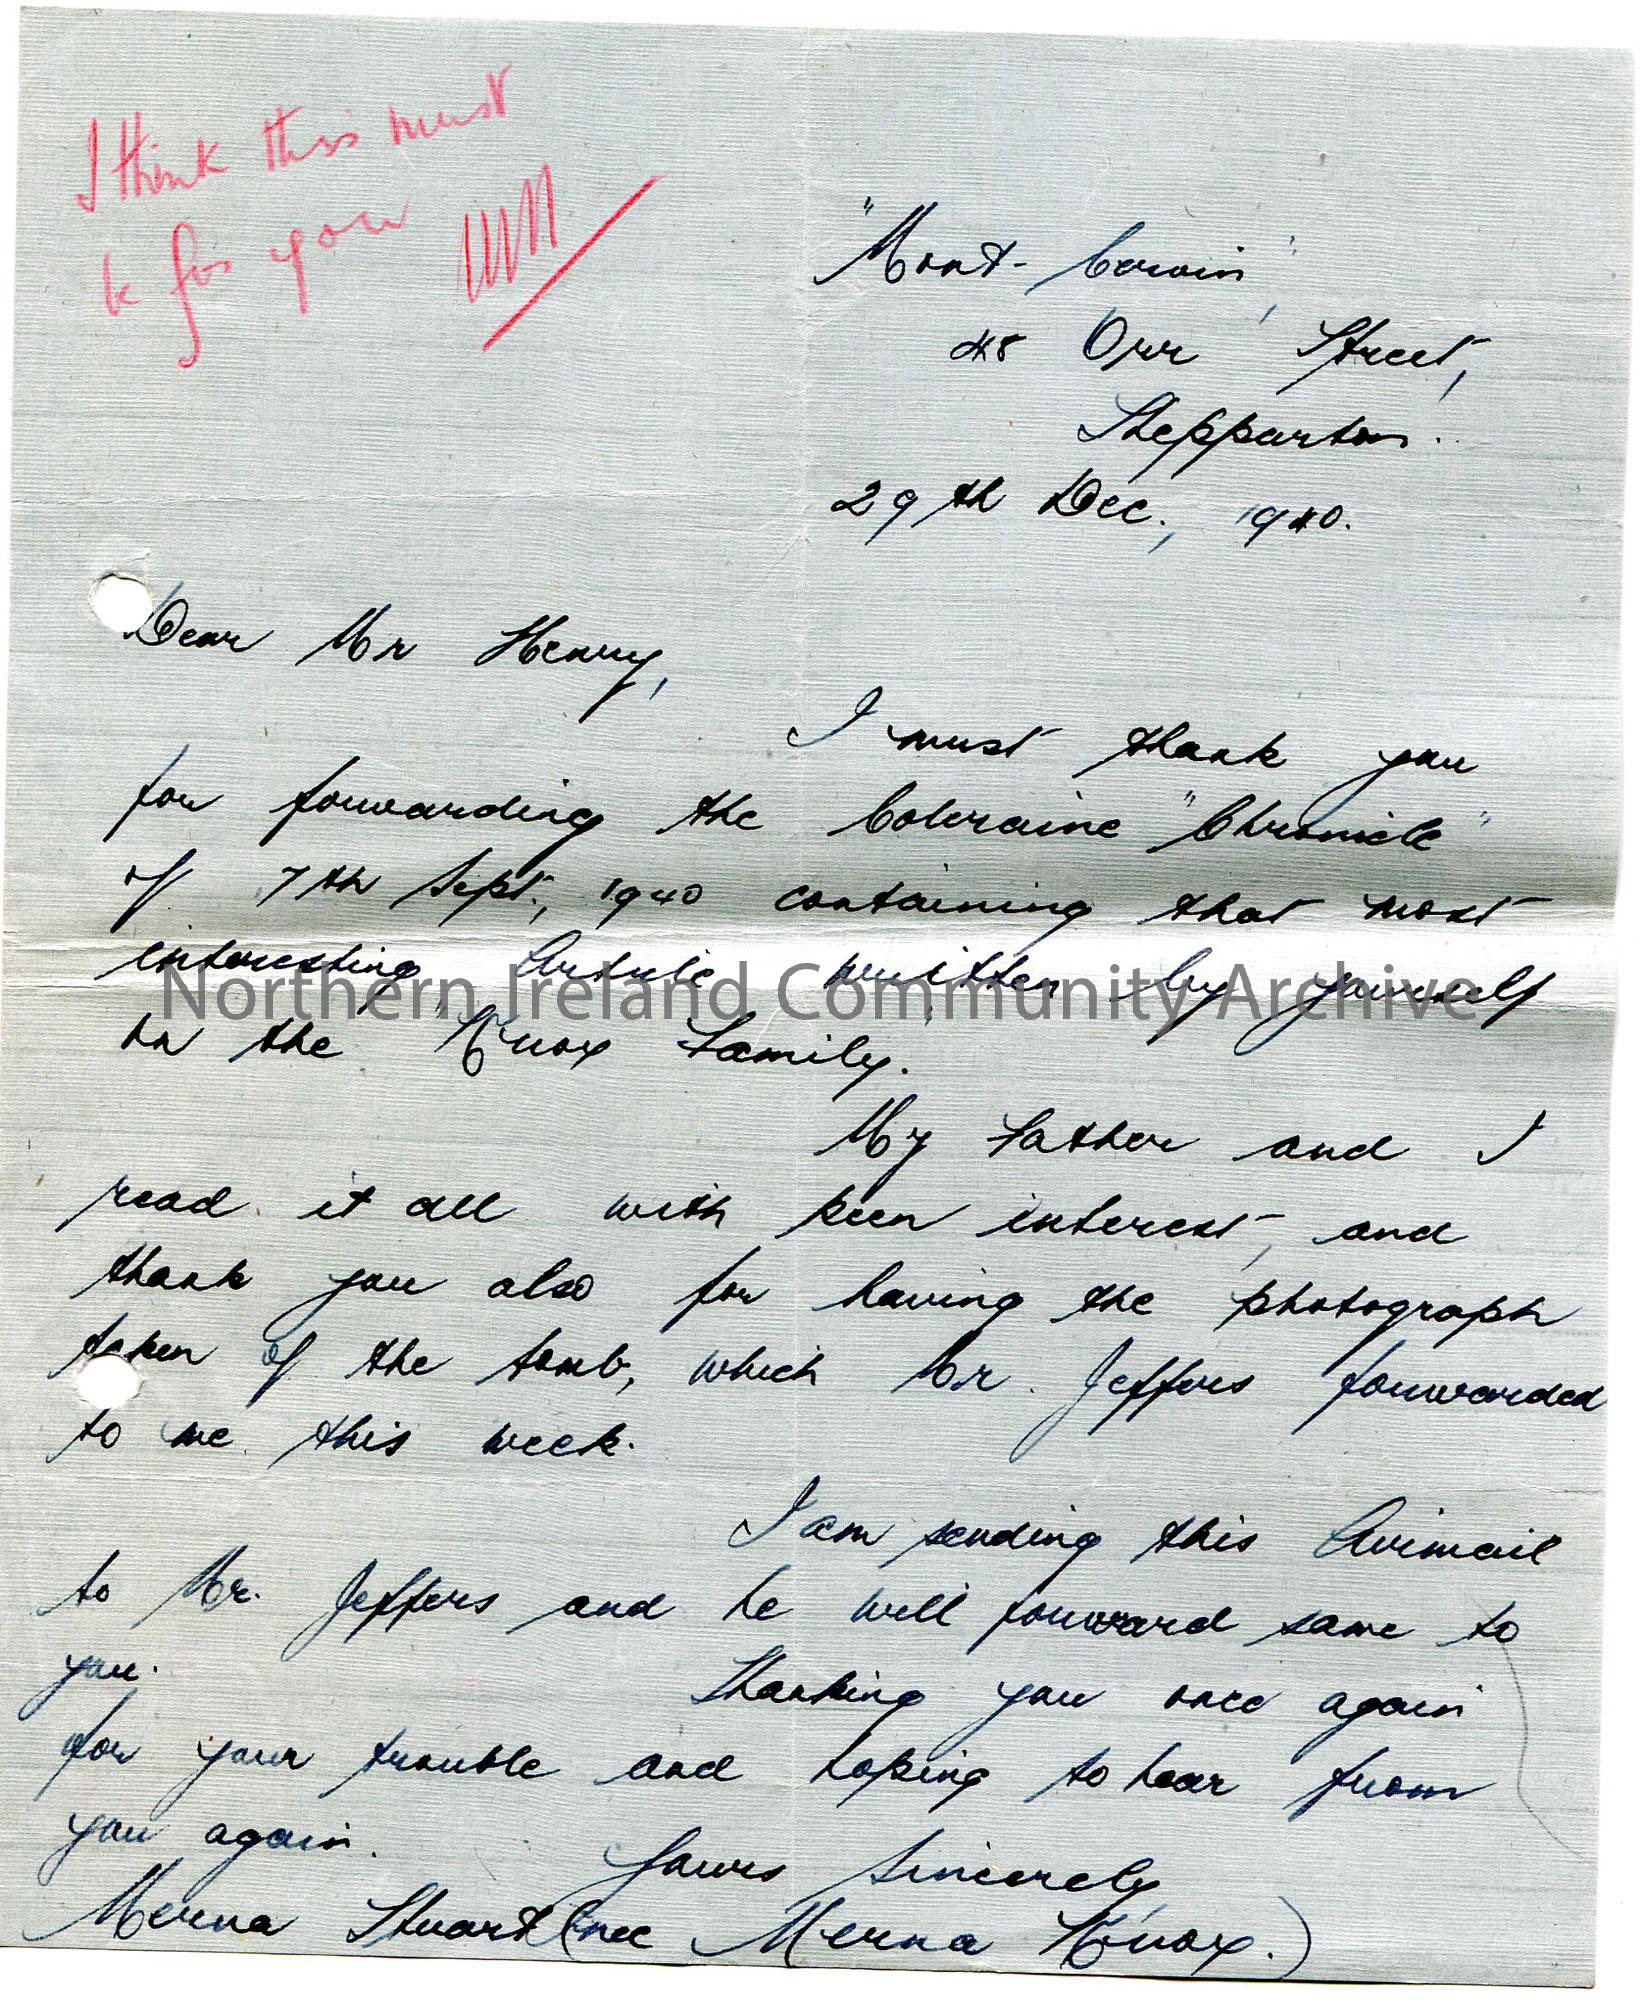 I think this must
be for you
"Mont-Cervin",
48 Orr Street,
Shepparton.
29th Dec., 1940.
Dear Mr Henry,
I must thank you
for forwarding the Coleraine "Chronicle"
of 7th Sept., 1940 containing that most
interesting Article written by yourself
Northern Ireland Community Archive
on the "Knox Family."
My Father and I
read it all with keen interest, and
thank you also for having the photograph
taken of the tomb, which Mr. Jeffers forwarded
to me this week.
I am sending this Airmail
to Mr. Jeffers and he will forward same to
you.
Thanking you once again
for your trouble and hoping to hear from
you again.
Yours Sincerely
Merna Stuart (nee Merna Knox.)